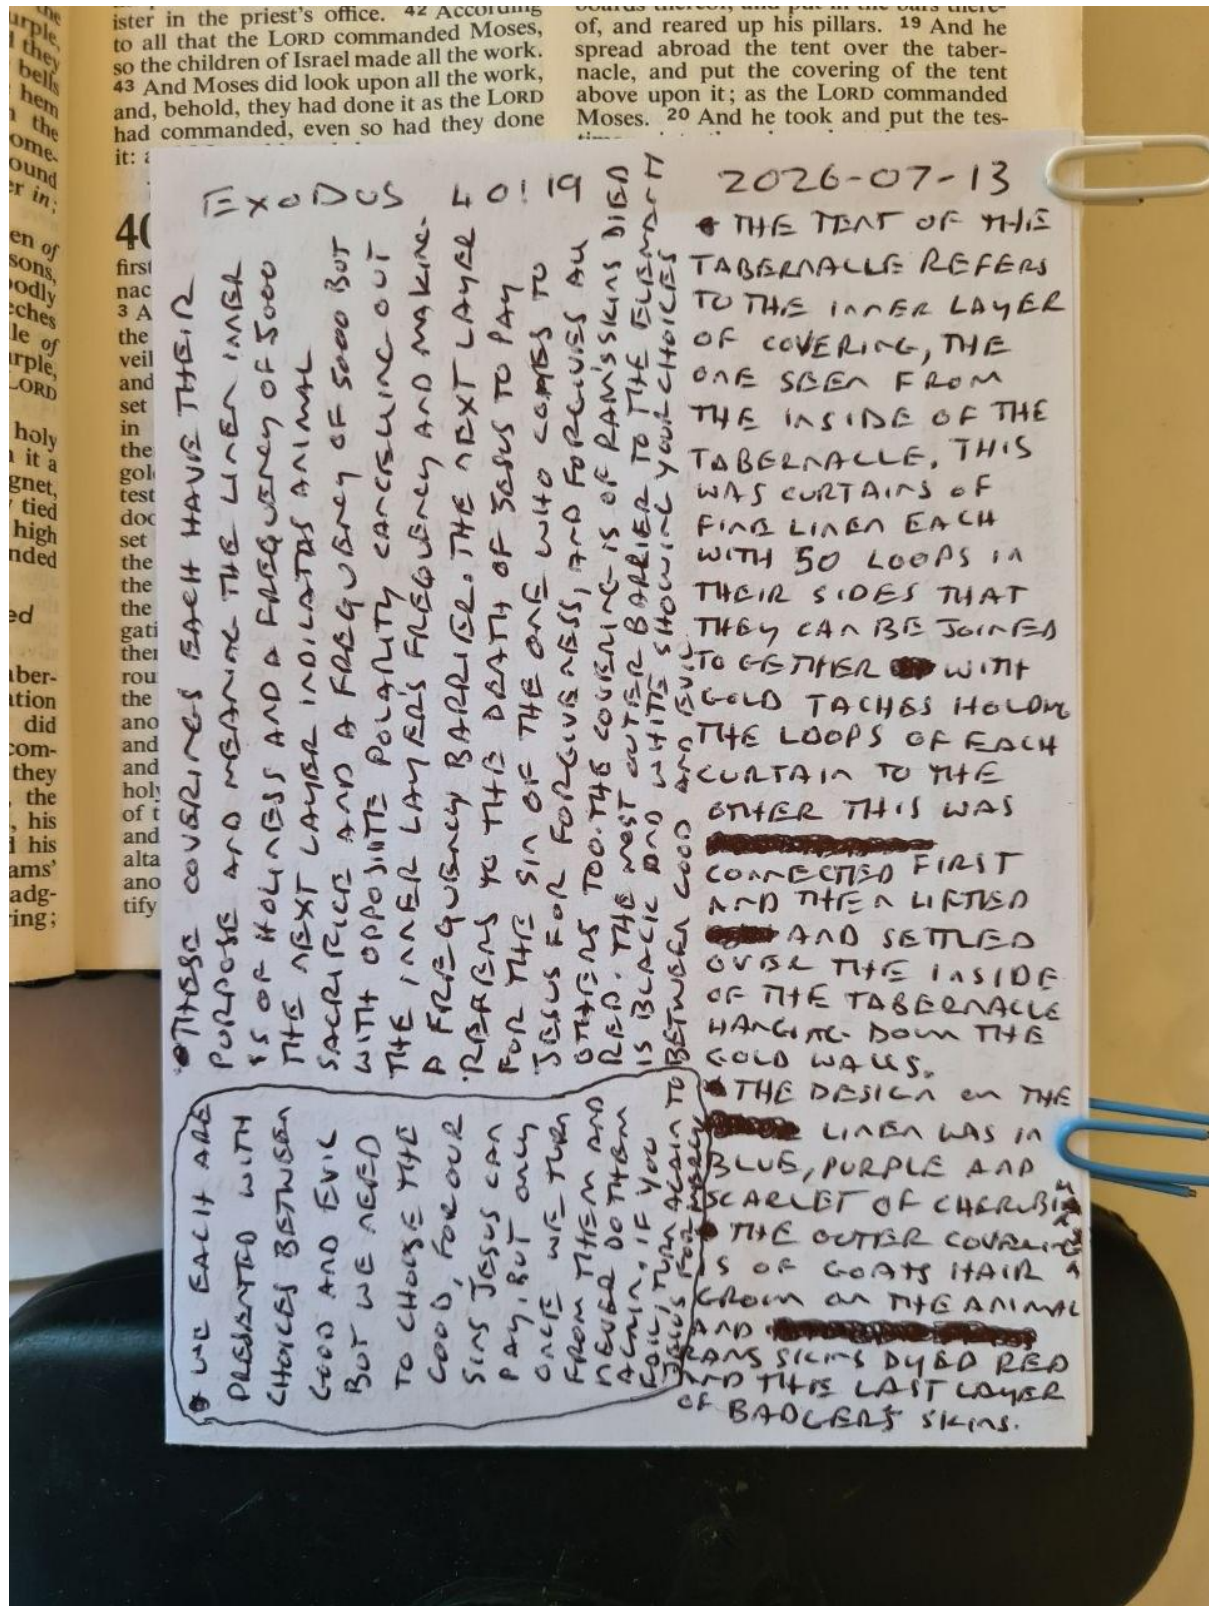 ister in the priest's office. 42 According
to all that the LORD commanded Moses,
so the children of Israel made all the work.
43 And Moses did look upon all the work,
and, behold, they had done it as the LORD
had commanded, even so had they done
it:
of, and reared up his pillars. 19 And he
spread abroad the tent over the taber-
nacle, and put the covering of the tent
above upon it; as the LORD commanded
Moses. 20 And he took and put the tes-
urple,
they
bells
hem
the
ome-
ound
er in;
en of
sons,
oodly
ches
le of
rple,
LORD
holy
it a
gnet,
tied
high
nded
ed
aber-
ation
did
com-
they
the
, his
his
ams'
adg-
ing;
40
first
nac
3 A
the
veil
and
set
in
the
gol
test
doo
set
the
the
the
gate
ther
rou
the
ano
and
and
holy
of t
and
alta
ano
tify
EXODUS 40:19
2026-07-13
• THE TENT OF THE
TABERNACLE REFERS
TO THE INNER LAYER
OF COVERING, THE
ONE SEEN FROM
THE INSIDE OF THE
TABERNACLE. THIS
WAS CURTAINS OF
FINE LINEN EACH
WITH 50 LOOPS IN
THEIR SIDES THAT
THEY CAN BE JOINED
TOGETHER WITH
GOLD TACHES HOLDING
THE LOOPS OF EACH
CURTAIN TO THE
OTHER THIS WAS
CONNECTED FIRST
AND THEN LIFTED
AND SETTLED
OVER THE INSIDE
OF THE TABERNACLE
HANGING DOWN THE
GOLD WALLS.
• THE DESIGN ON THE
LINEN WAS IN
BLUE, PURPLE AND
SCARLET OF CHERUBIMS
• THE OUTER COVERING
IS OF GOATS HAIR
GROWN ON THE ANIMAL
AND
RAMS SKINS DYED RED
AND THE LAST LAYER
OF BADGERS SKINS.
• THESE COVERINGS EACH HAVE THEIR
PURPOSE AND MEANING THE LINEN INNER
IS OF HOLINESS AND A FREQUENCY OF 5000
THE NEXT LAYER INDICATES ANIMAL
SACRIFICE AND A FREQUENCY OF 5000 BUT
WITH OPPOSITE POLARITY CANCELLING OUT
THE INNER LAYER'S FREQUENCY AND MAKING
A FREQUENCY BARRIER. THE NEXT LAYER
REFERS TO THE DEATH OF JESUS TO PAY
FOR THE SIN OF THE ONE WHO COMES TO
JESUS FOR FORGIVENESS, AND FORGIVES ALL
OTHERS TOO. THE COVERING IS OF RAM'S SKINS DIED
RED. THE MOST OUTER BARRIER TO THE ELEMENT
IS BLACK AND WHITE SHOWING YOUR CHOICES
BETWEEN GOOD AND EVIL
• WE EACH ARE
PRESENTED WITH
CHOICES BETWEEN
GOOD AND EVIL
BUT WE NEED
TO CHOOSE THE
GOOD, FOR OUR
SINS JESUS CAN
PAY, BUT ONLY
ONCE WE TURN
FROM THEM AND
NEVER DO THEM
AGAIN. IF YOU
FAIL, TURN AGAIN TO
JESUS FOR MERCY